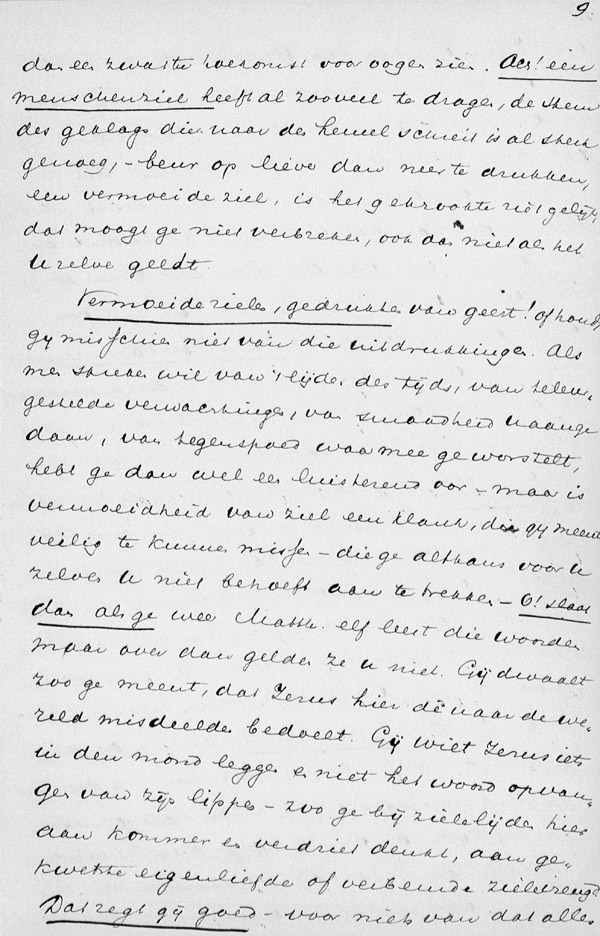 9.
dan een zwarte toekomst voor oogen zien. Ach! een
menschenziel heeft al zooveel te dragen, de stem
des geklags die naar den hemel schreit is al sterk
genoeg, - beur op liever dan neer te drukken,
een vermoeide ziel, is het gekrookte riet gelijk,
dat moogt ge niet verbreken, ook dan niet als het
U zelve geldt.
Vermoeide zielen, gedrukten van geest! of houdt
gy misschien niet van die uitdrukkingen. Als
men spreken wil van 't lijden des tijds, van teleur-
gestelde verwachtingen, van smaadheid U aange
daan, van tegenspoed waarmee ge worstelt,
hebt ge dan wel een luisterend oor - maar is
vermoeidheid van ziel een klank, die gy meent
veilig te kunnen missen - die ge althans voor U
zelven U niet behoeft aan te trekken - O! slaat
dan als ge weer Matth. elf leest die woorden
maar over dan gelden ze U niet. Gij dwaalt
zoo ge meent, dat Jezus hier de naar de we-
reld misdeelden bedoelt. Gij wilt Jezus iets
in den mond leggen en niet het woord opvan-
gen van zijn lippen - zoo ge bij zielelijden hier
aan kommer en verdriet denkt, aan ge-
kwetste eigenliefde of
Dat zegt gij goed - voor niets van dat alles